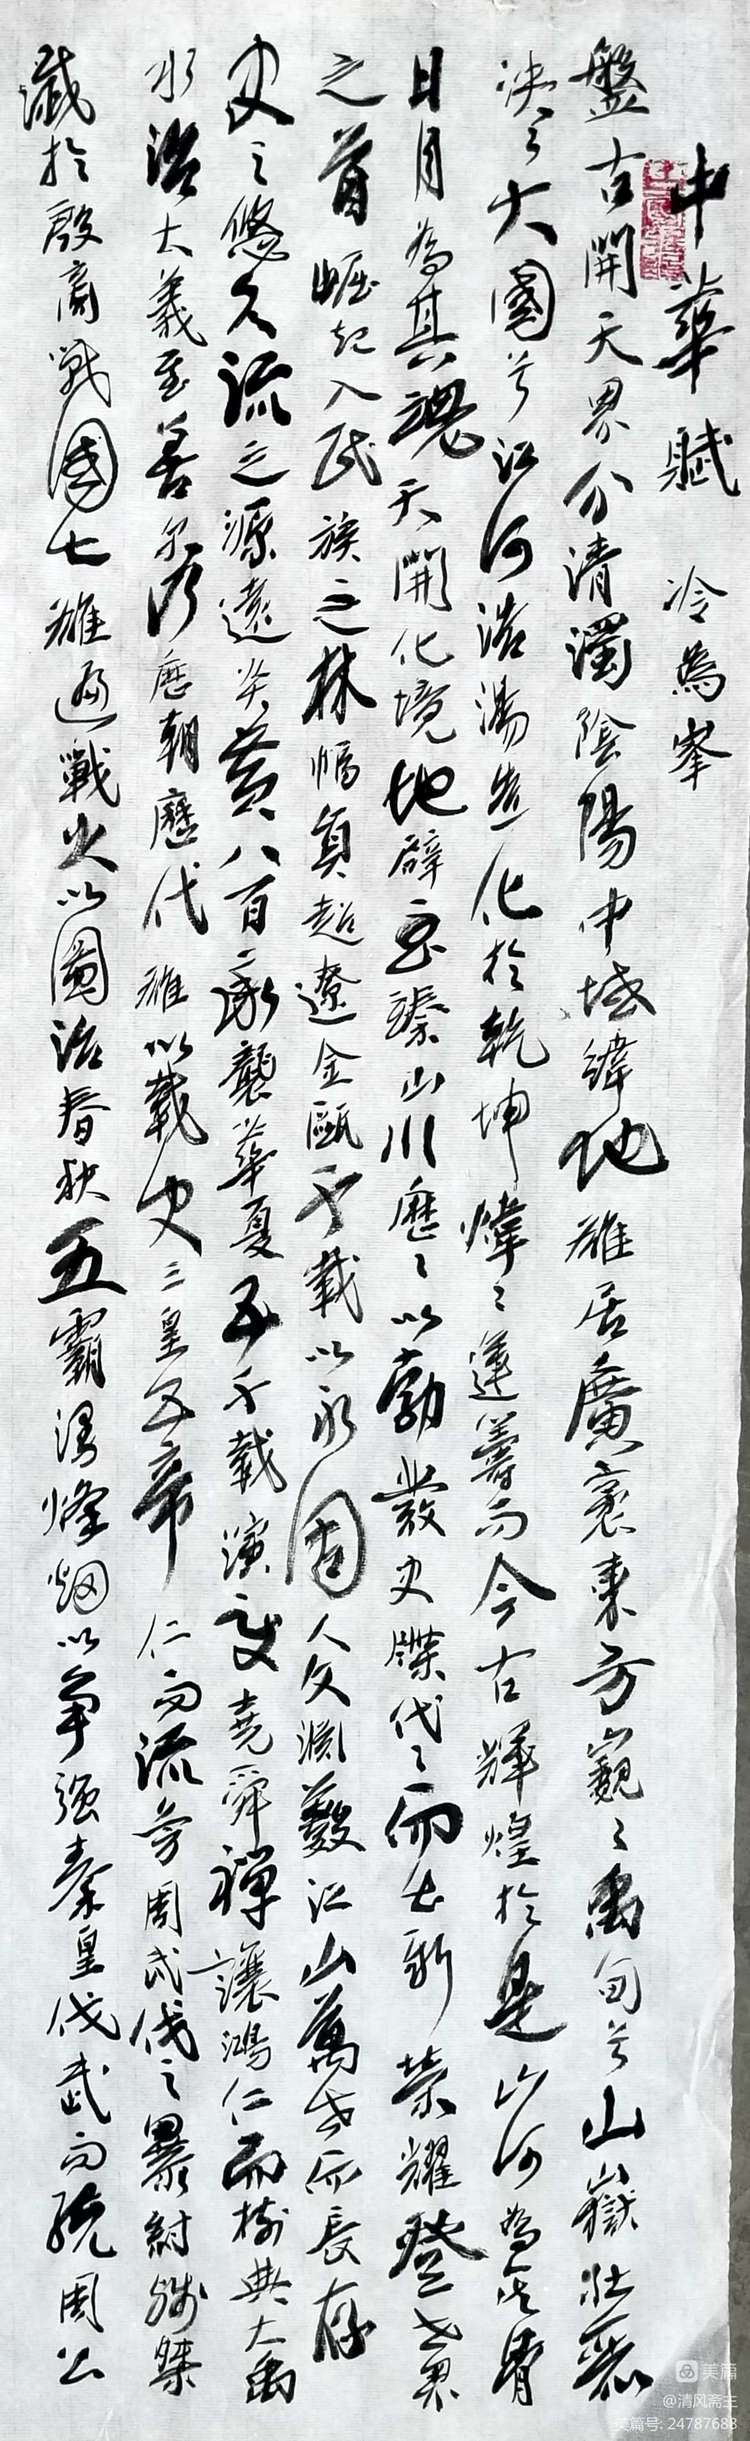 中華賦 冷為峯
盤古開天界分清濁陰陽中域緯地雄居廣袤東方巍々禹甸兮山嶽壯麗
泱々大國兮江河浩蕩造化於乾坤煒々蓮萼而今古輝煌於是山河為其骨
日月為其魂天開化境地辟臻山川歷々以勃發史牒代々而出新榮耀登世界
之首崛起入民族之林幅員超遼金甌千載以永固人文淵藪江山萬世而長存
史之悠久流之源遠炎黃八百承襲華夏五千載演變堯舜禪讓鴻仁而樹典大禹
水治大義至善歷朝歷代雄以載史三皇五帝仁而流芳周武伐之暴紂殘桀
瀐於殷商戰國七雄遍戰火以圖治春秋五霸湧烽烟以爭强秦皇伐武而統周公
美篇
@清风斋主
美篇号: 24787688